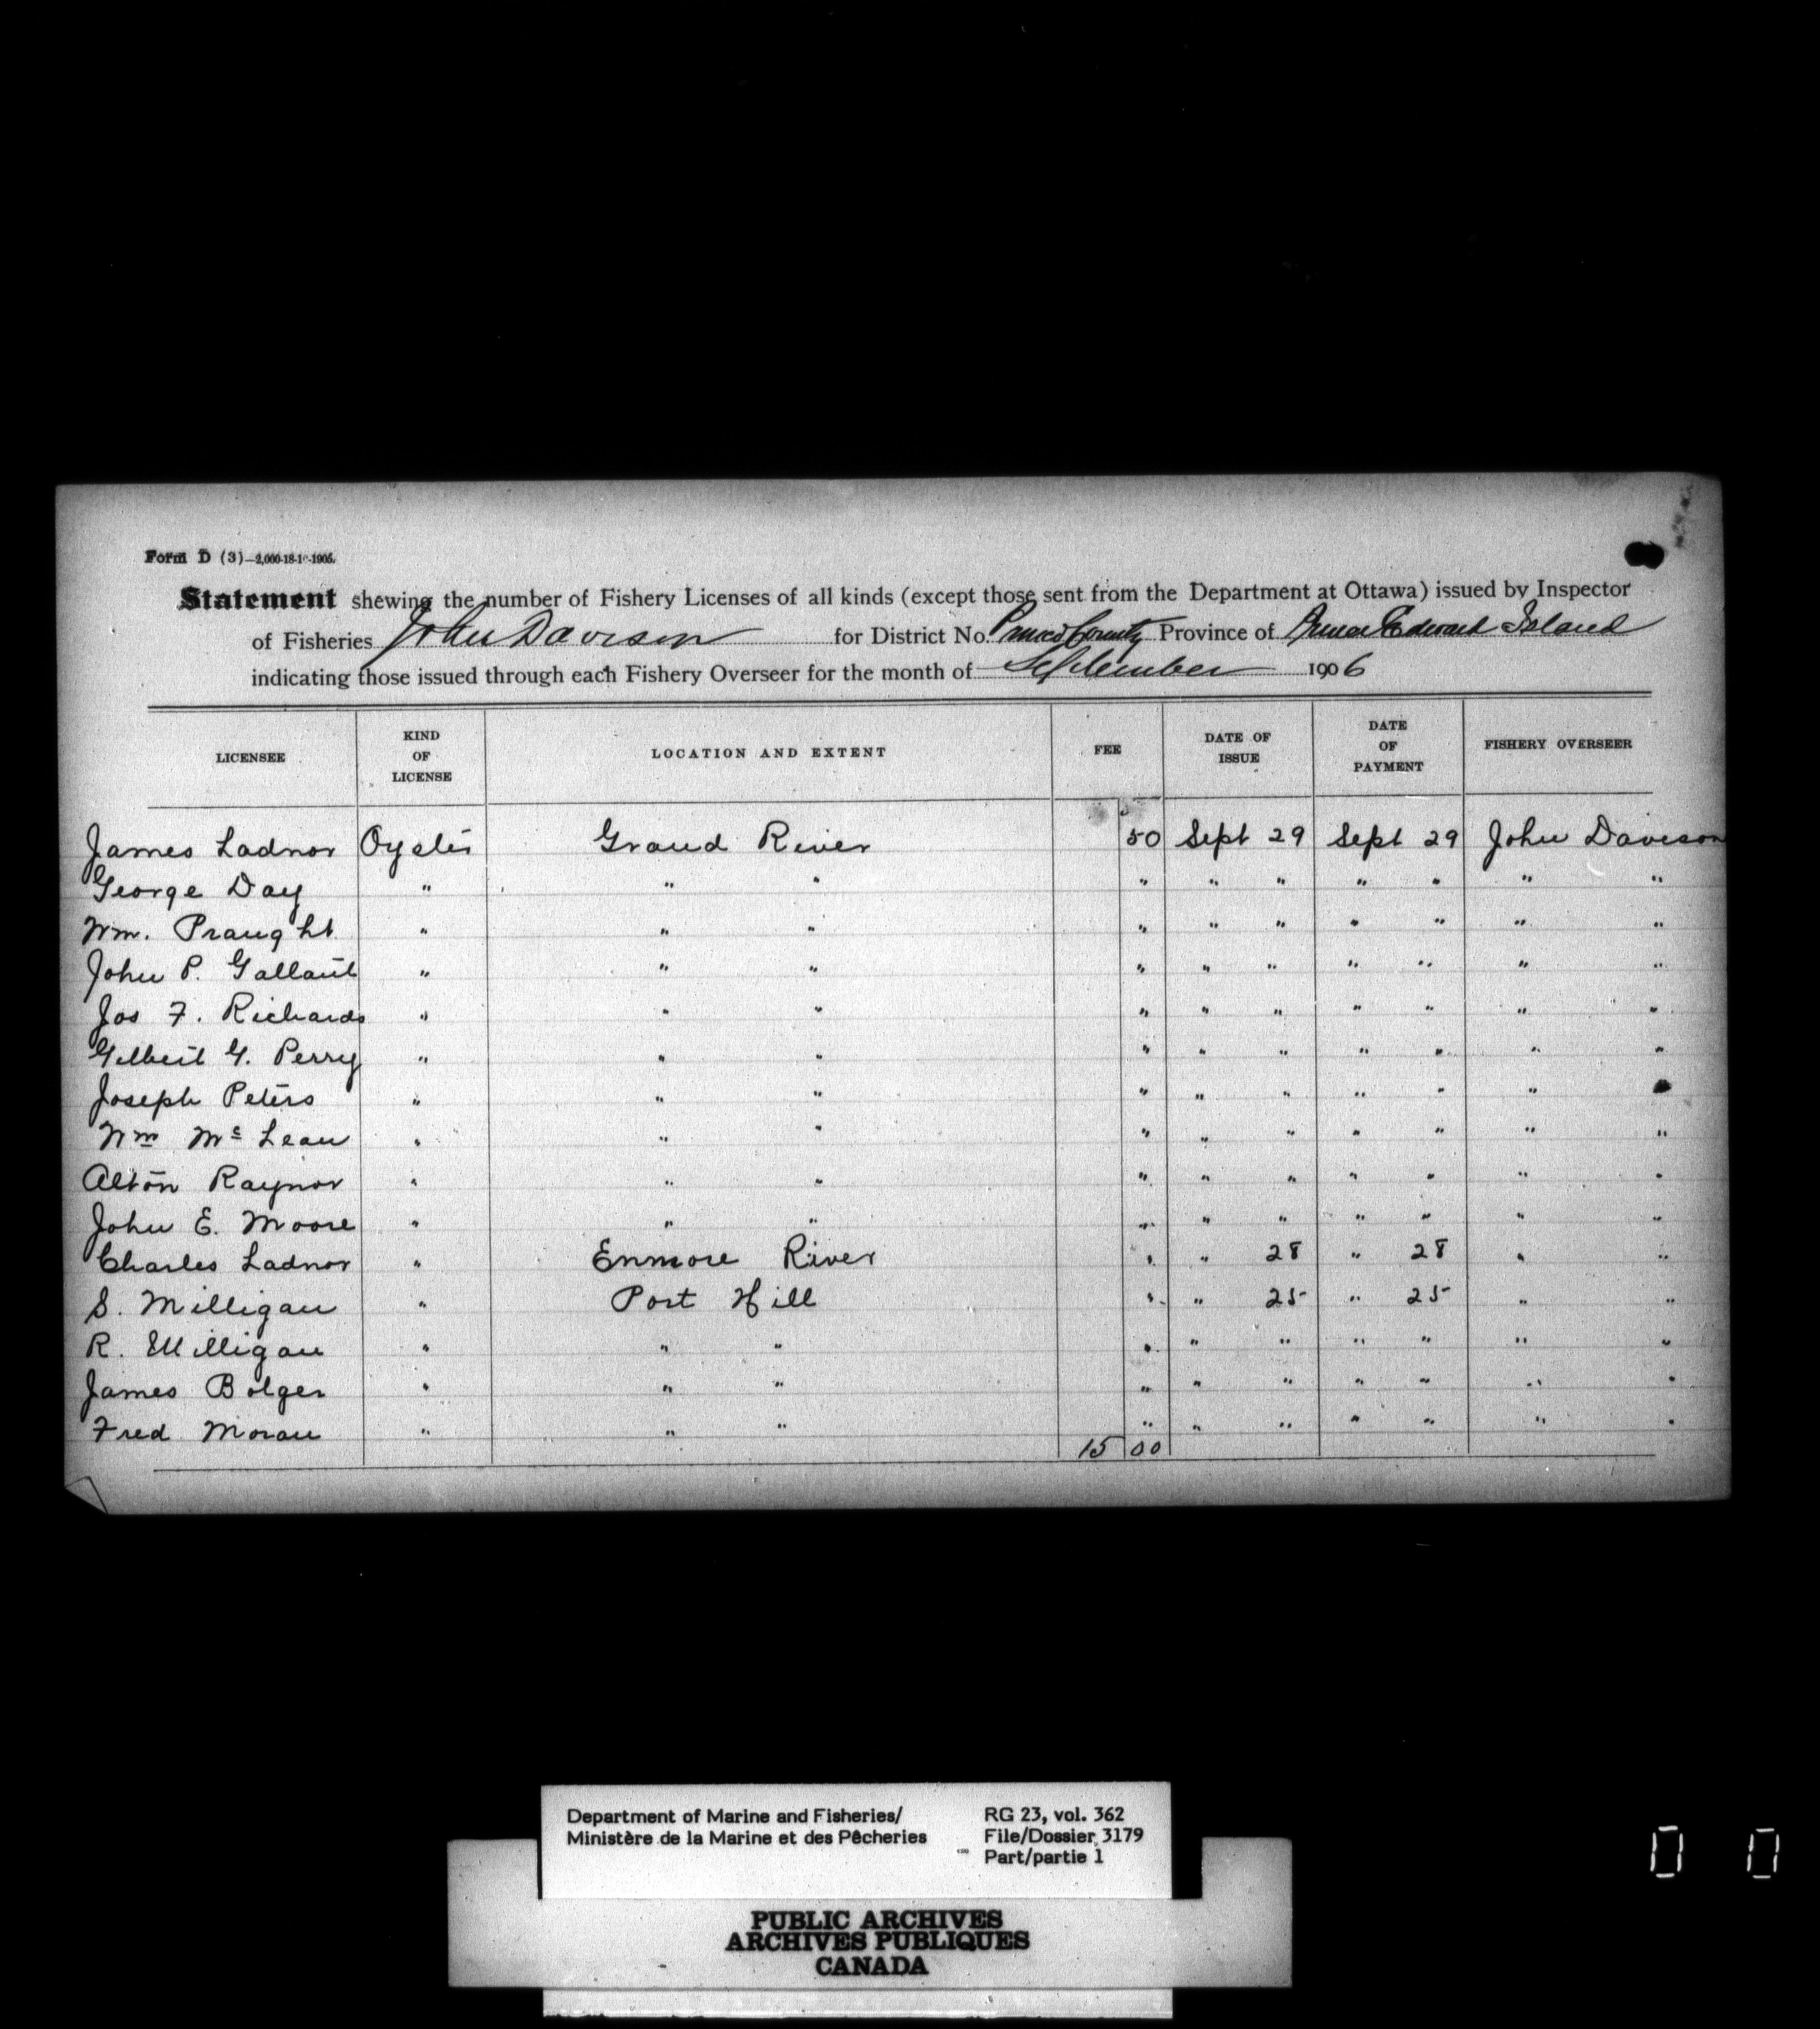 Form D (3)—2,000-18-10-1905.
Statement shewing the number of Fishery Licenses of all kinds (except those sent from the Department at Ottawa) issued by Inspector
of Fisheries John Davison for District No. Prince County Province of Prince Edward Island
indicating those issued through each Fishery Overseer for the month of September 1906
LICENSEE KIND OF LICENSE LOCATION AND EXTENT FEE DATE OF ISSUE DATE OF PAYMENT FISHERY OVERSEER
James Ladnor Oyster Grand River 50 Sept 29 Sept 29 John Davison
George Day " " " " " " " " " "
Wm. Praught " " " " " " " " " "
John P. Gallant " " " " " " " " " "
Jos F. Richards " " " " " " " " " "
Gilbert G. Perry " " " " " " " " " "
Joseph Peters " " " " " " " " " "
Wm McLean " " " " " " " " " "
Alton Raynor " " " " " " " " " "
John E. Moore " " " " " " " " " "
Charles Ladnor " Enmore River " " 28 " 28 " "
S. Milligan " Port Hill " " 25 " 25 " "
R. Milligan " " " " " " " " " "
James Bolger " " " " " " " " " "
Fred Moran " " " " " " " " " "
15 00
Department of Marine and Fisheries/
Ministère de la Marine et des Pêcheries
RG 23, vol. 362
File/Dossier 3179
Part/partie 1
PUBLIC ARCHIVES
ARCHIVES PUBLIQUES
CANADA
0 0